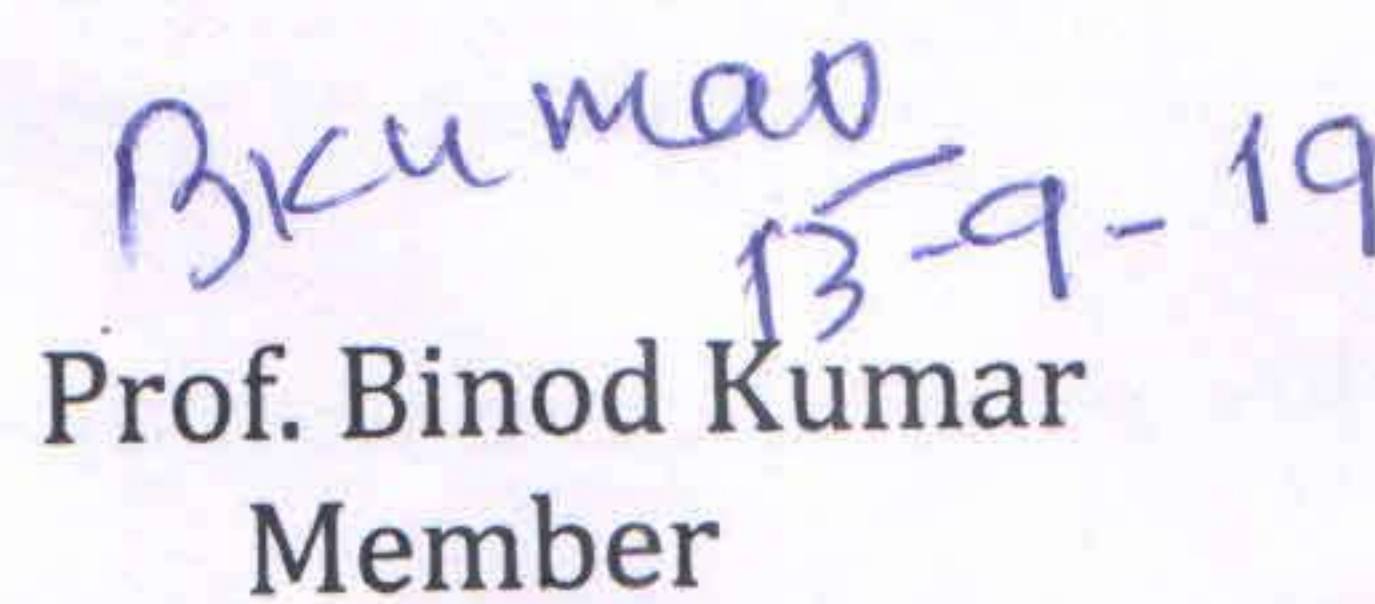 BKumar
13-9-19
Prof. Binod Kumar
Member